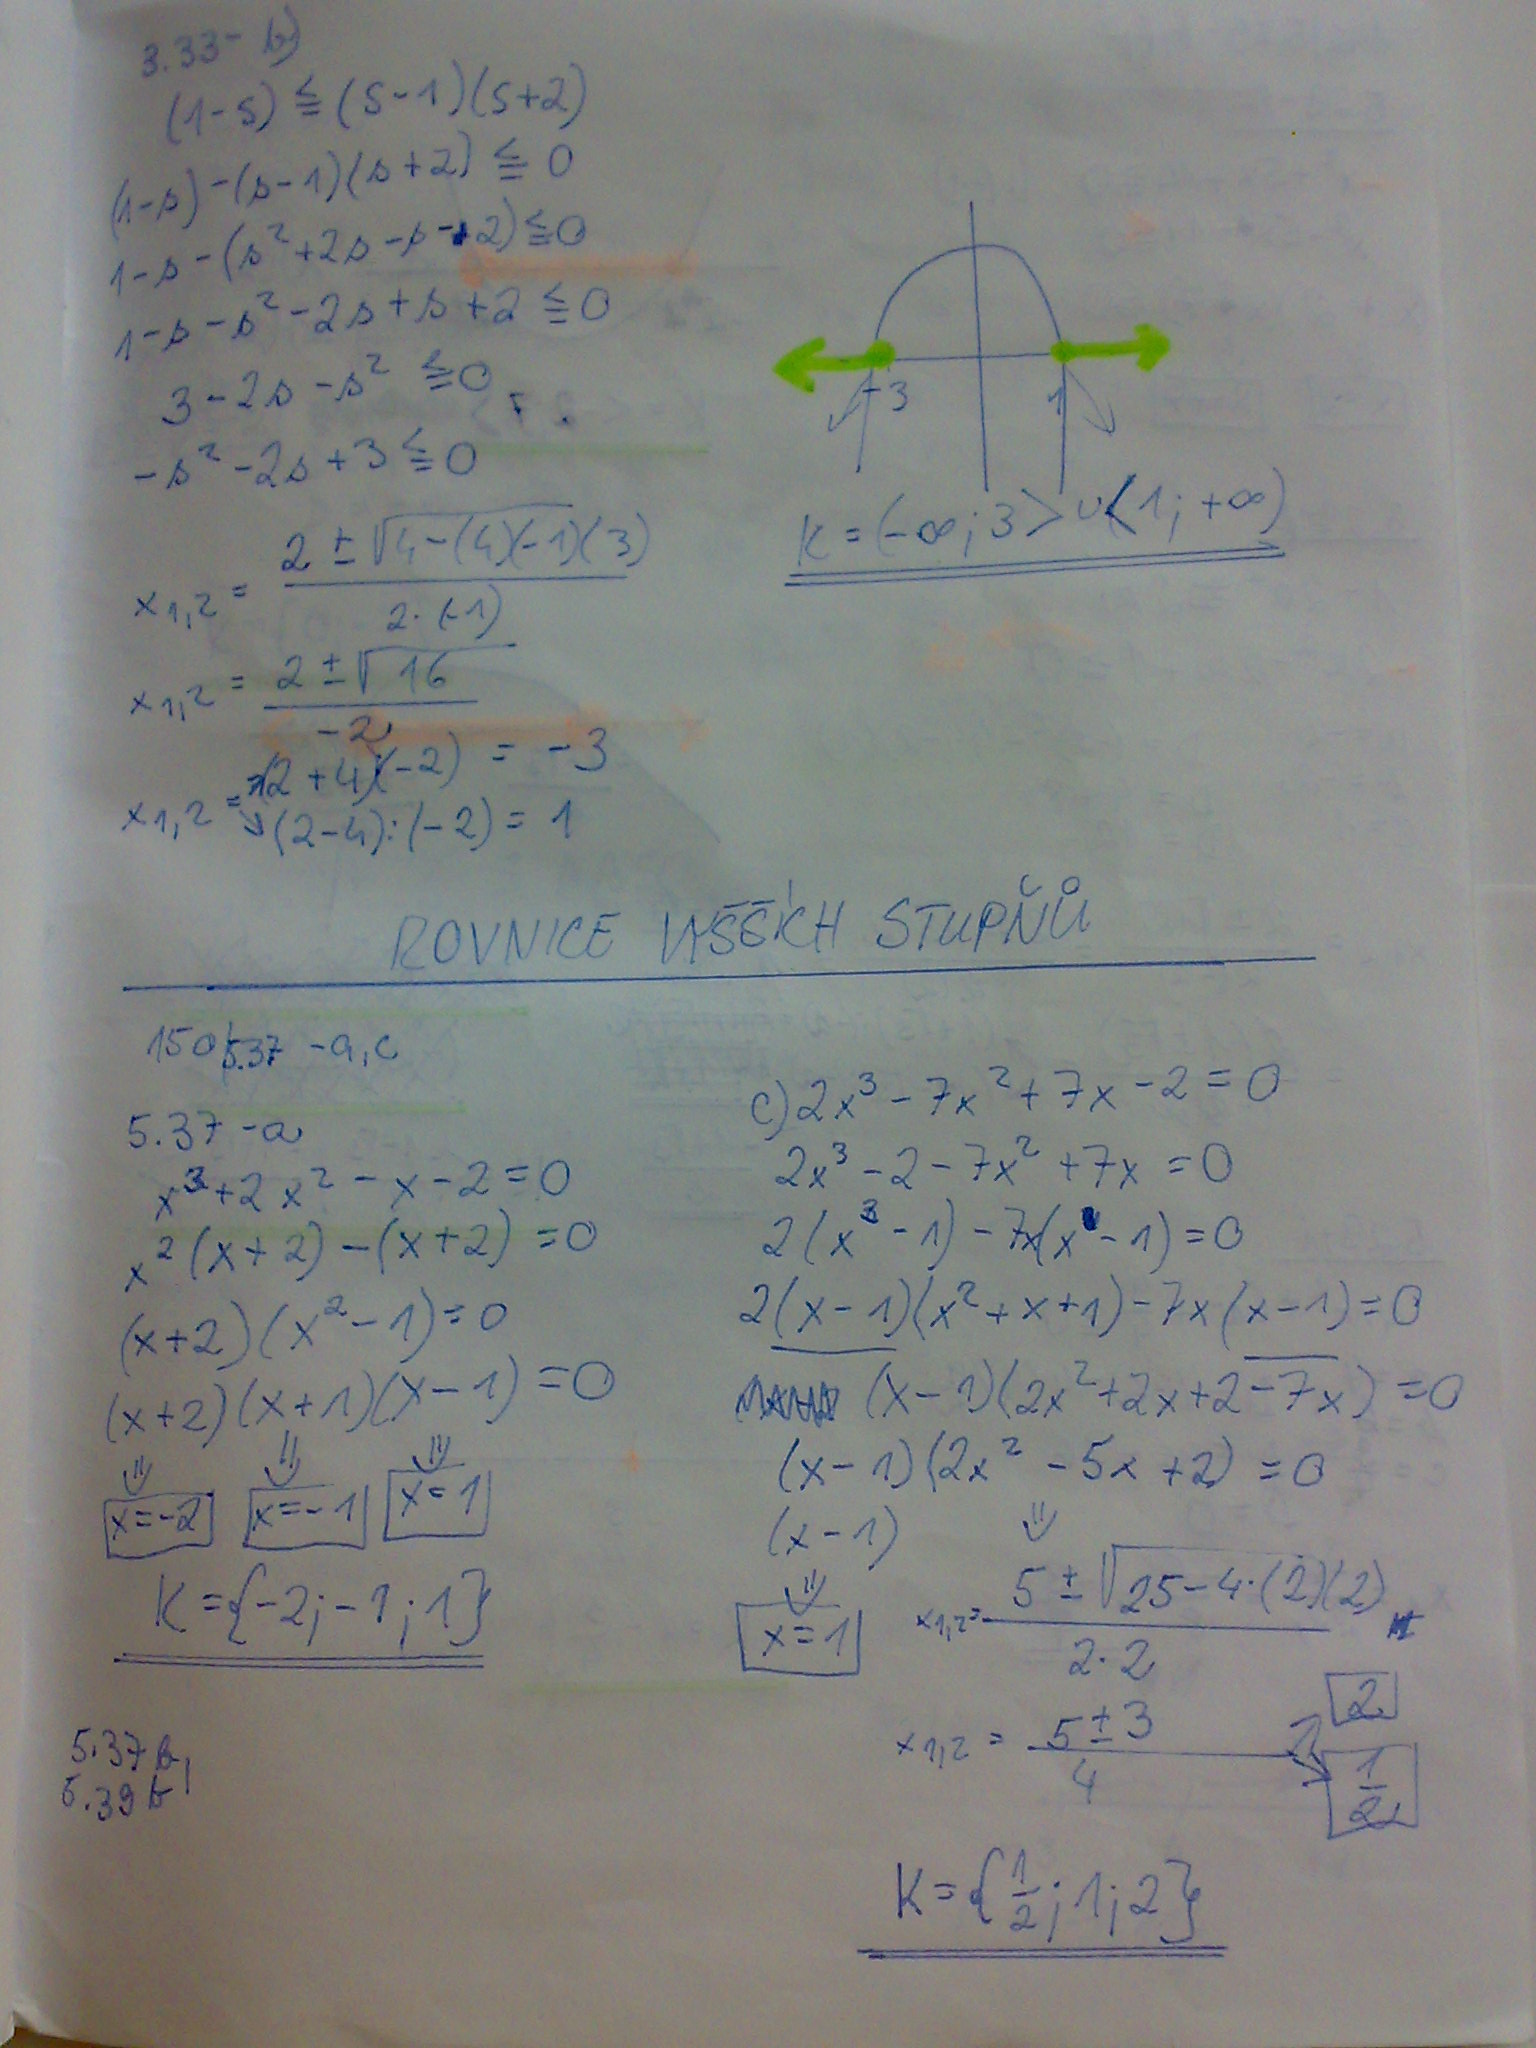 3.33- b)
(1-s) ≦ (s-1)(s+2)
(1-s)-(s-1)(s+2) ≦ 0
1-s-(s²+2s-s-2) ≦ 0
1-s-s²-2s+s+2 ≦ 0
3-2s-s² ≦ 0
-s²-2s+3 ≦ 0
x1,2 = 2 ± √4-(4)(-1)(3) / 2·(-1)
x1,2 = 2 ± √16 / -2
x1,2 = (2+4)(-2) = -3
(2-4):(-2) = 1
-3 1
K = (-∞; 3> ∪ <1; +∞)
ROVNICE VYŠŠÍCH STUPŇŮ
150/5.37 -a,c
5.37 -a
x³+2x²-x-2=0
x²(x+2)-(x+2)=0
(x+2)(x²-1)=0
(x+2)(x+1)(x-1)=0
x=-2 x=-1 x=1
K={-2;-1;1}
5.37 b,
5.39 b
c) 2x³-7x²+7x-2=0
2x³-2-7x²+7x=0
2(x³-1)-7x(x-1)=0
2(x-1)(x²+x+1)-7x(x-1)=0
(x-1)(2x²+2x+2-7x)=0
(x-1)(2x²-5x+2)=0
(x-1)
x=1
x1,2= 5 ± √25-4·(2)(2) / 2·2
x1,2 = 5±3 / 4
2
1/2
K={1/2;1;2}